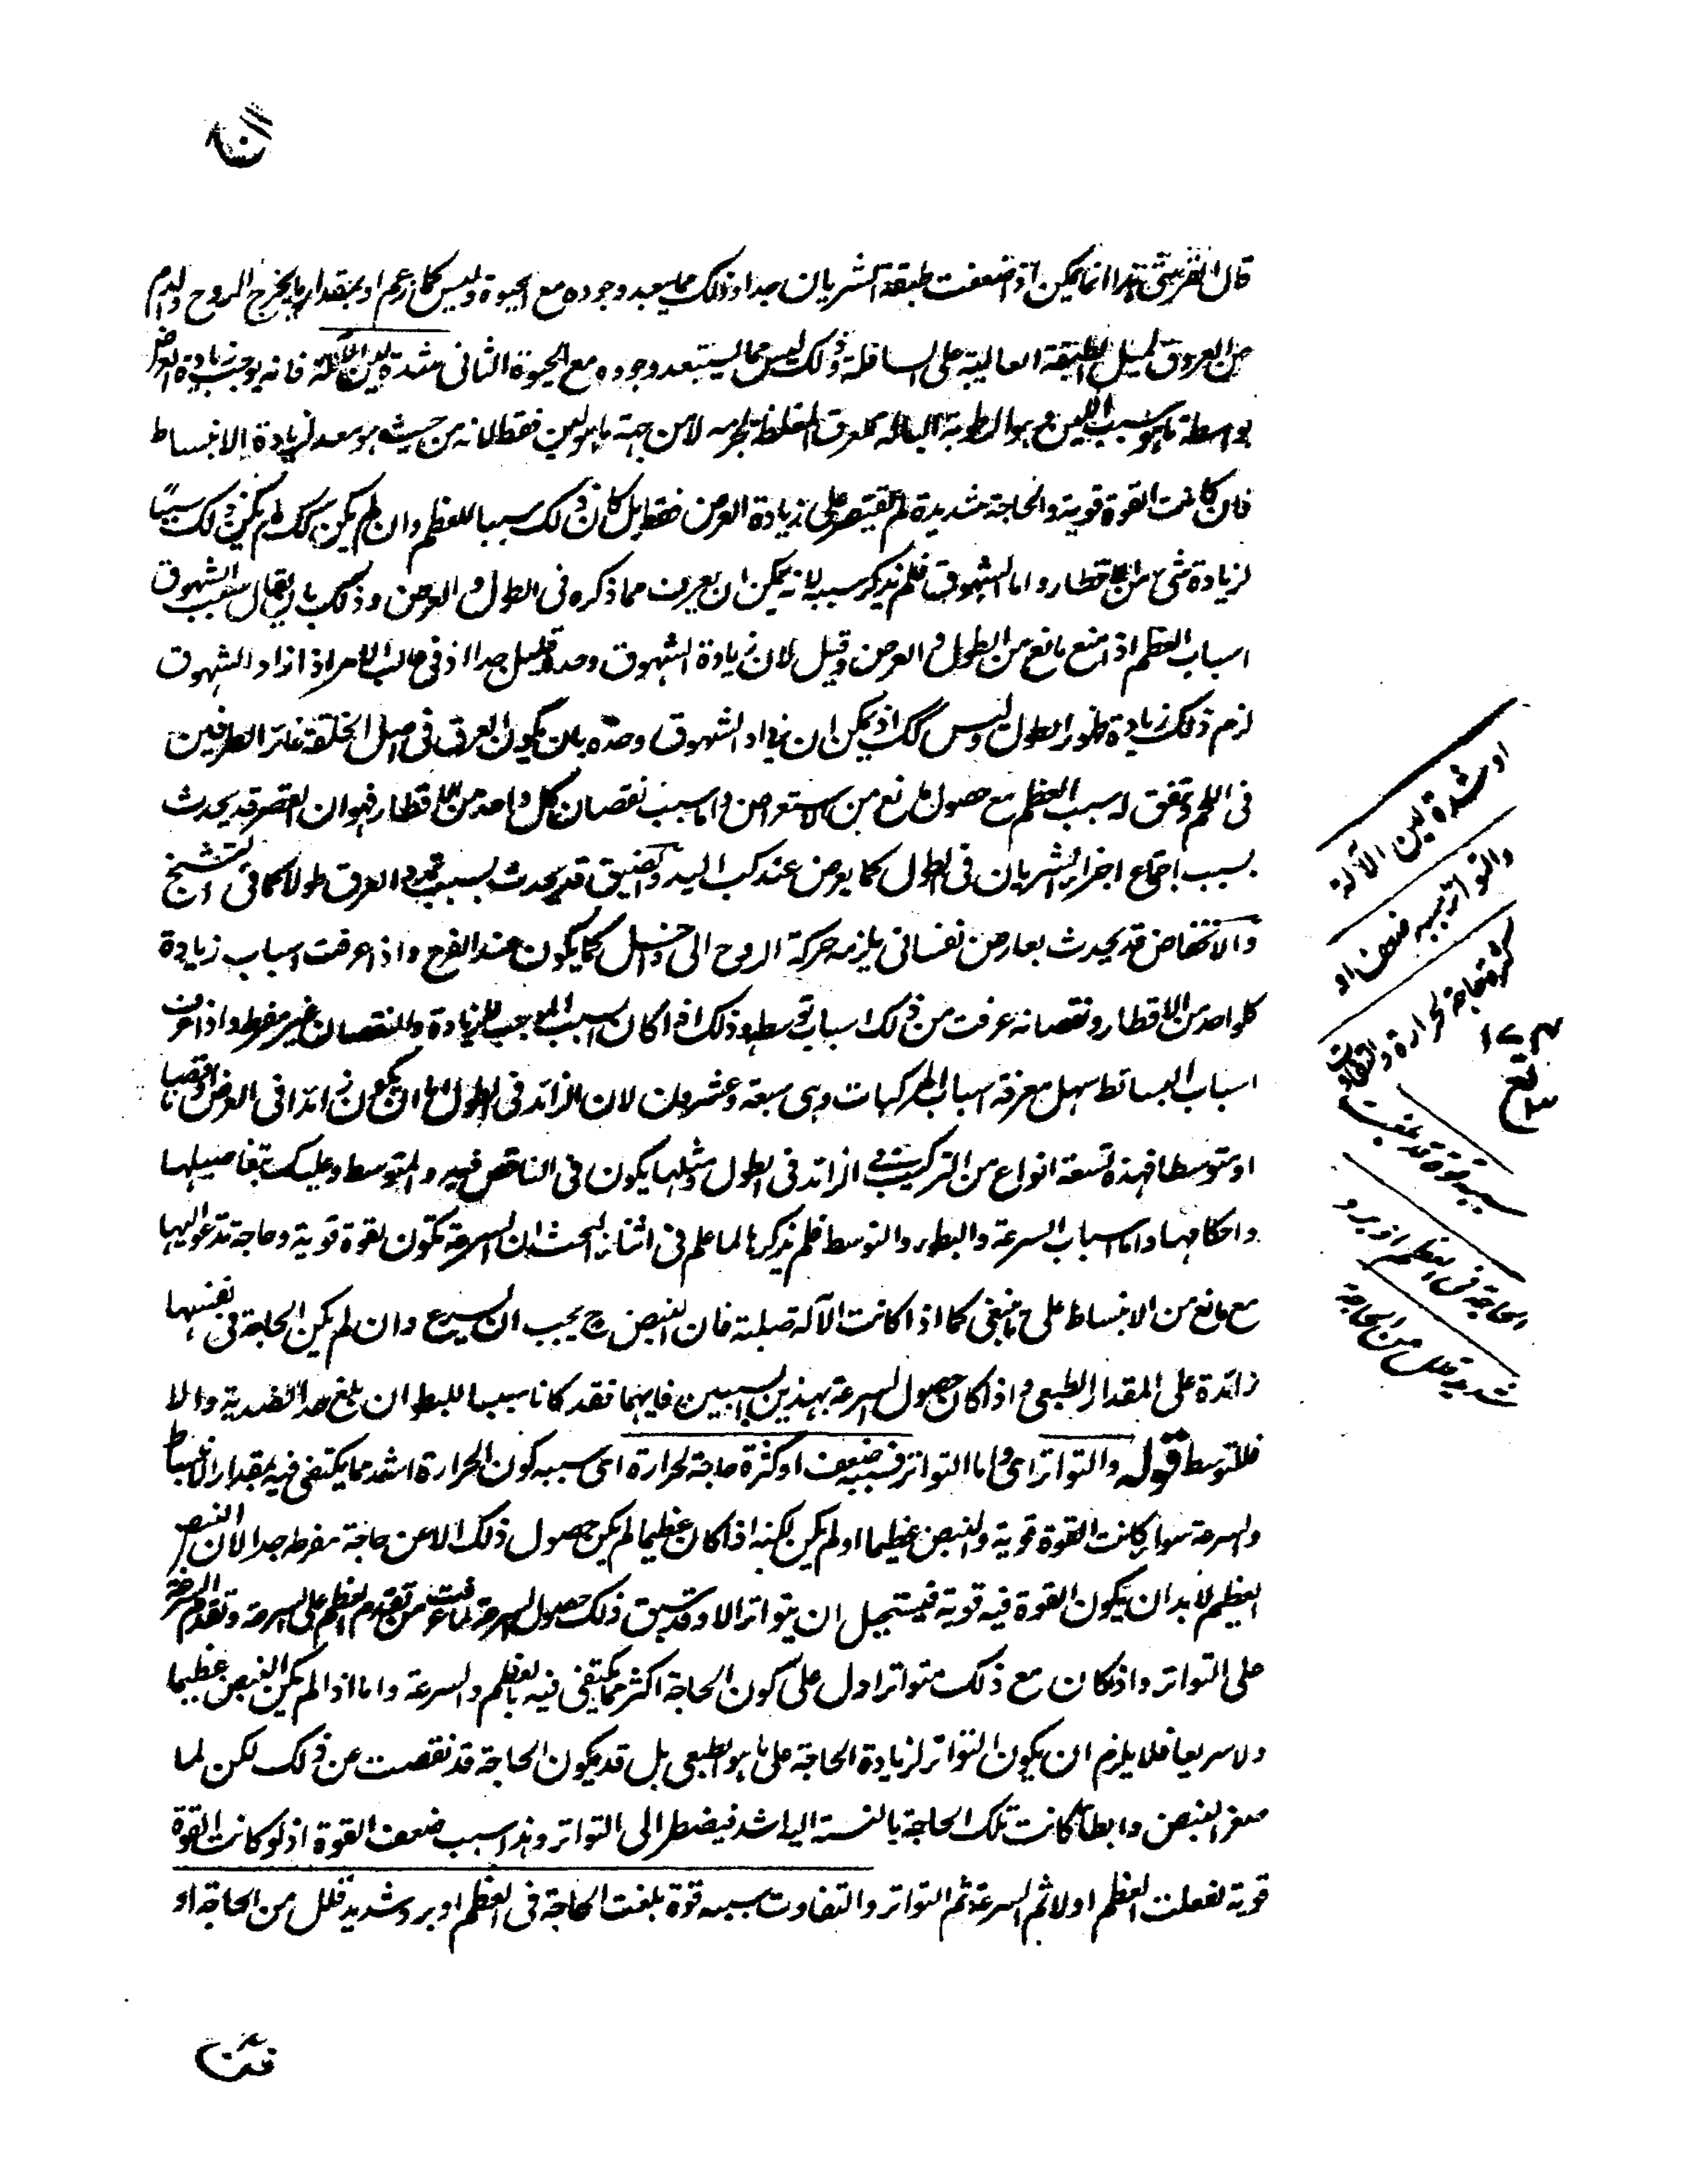 قال القرشي هذا انما يمكن اذا ضعفت طبقة الشريان جدا وذلك مما يبعد وجوده مع الحيوة وليس كما زعم اذ بمقدار ما يخرج الروح والدم
من العروق تميل الطبقة العالية على السافلة وذلك ليس مما يستبعد وجوده مع الحيوة الثانى شدة لين الآلة فانه يوجب زيادة العرض
بواسطة ما هو سبب اللين وهو الرطوبة البالة للعرق المغلظة لجرمه لا من جهة ما هو لين فقط لانه من حيث هو معد لزيادة الانبساط
فان كانت القوة قوية والحاجة شديدة لم تقتصر على زيادة العرض فقط بل كان ذلك سببا للعظم وان لم يكن كك لم يكن ذلك سببا
لزيادة شئ من الاقطار واما الشهوق فلم يذكر سببه لانه يمكن ان يعرف مما ذكره فى الطول والعرض وذلك بان يقال سبب الشهوق
اسباب العظم اذا منع مانع من الطول والعرض وقيل لان زيادة الشهوق وحده قليل جدا اذ فى غالب الامر اذا زاد الشهوق
لزم ذلك زيادة ظهور الطول وليس كك اذ يمكن ان يزداد الشهوق وحده بان يكون العرق فى اصل الخلقة غائر الطرفين
فى اللحم وتفق له سبب العظم مع حصول مانع من الاستعراض واما سبب نقصان كل واحد من الاقطار فهو ان القصر قد يحدث
بسبب اجتماع اجزاء الشريان فى الطول كما يعرض عند كب اليد والضيق قد يحدث بسبب تمدد العرق طولا كما فى التشنج
والانخفاض قد يحدث بعارض نفسانى يلزمه حركة الروح الى داخل كما يكون عند الفزع واذا عرفت اسباب زيادة
كل واحد من الاقطار ونقصانه عرفت من ذلك اسباب توسطه وذلك اذا كان السبب الموجب للزيادة والنقصان غير مفرط واذا عرفت
اسباب البسائط سهل معرفة اسباب المركبات وهى سبعة وعشرون لان الزائد فى الطول اما ان يكون زائدا فى العرض او ناقصا
او متوسطا فهذه تسعة انواع من التركيب فى الزائد فى الطول ومثلها يكون فى الناقص فيه والمتوسط وعليك بتفاصيلها
واحكامها واما اسباب السرعة والبطوء والتوسط فلم يذكرها لما علم فى اثناء البحث ان السرعة تكون لقوة قوية وحاجة تدعو اليها
مع مانع من الانبساط على ما ينبغى كما اذا كانت الآلة صلبة فان النبض ح يجب ان يسرع وان لم يكن الحاجة فى نفسها
زائدة على المقدار الطبيعى واذا كان حصول السرعة بهذين السببين فايهما فقد كانا سببا للبطء ان بلغ حد الضدية والا
فللتوسط قوله والتواتر اى واما التواتر فسببه ضعف او كثرة حاجة لحرارة اى سببه كون الحرارة اشد مما يكتفى فيه بمقدار الانبساط
والسرعة سواء كانت القوة قوية والنبض عظيما او لم يكن لكنه اذا كان عظيما لم يكن حصول ذلك الا عن حاجة مفرطة جدا لان النبض
العظيم لابد ان يكون القوة فيه قوية فيستحيل ان يتواتر الا وقد سبق ذلك حصول السرعة لما عرفت من تقدم العظم على السرعة وتقدم السرعة
على التواتر واذا كان مع ذلك متواترا دل على كون الحاجة اكثر مما يكتفى فيه بالعظم والسرعة واما اذا لم يكن النبض عظيما
ولا سريعا فلا يلزم ان يكون التواتر لزيادة الحاجة على ما هو الطبيعى بل قد يكون الحاجة قد نقصت عن ذلك لكن لما
صغر النبض وابطأ كانت تلك الحاجة بالنسبة اليه اشد فيضطر الى التواتر وهذا سبب ضعف القوة اذ لو كانت القوة
قوية لفعلت العظم اولا ثم السرعة ثم التواتر والتفاوت سببه قوة بلغت الحاجة فى العظم او برد شديد قلل من الحاجة او
او شدة لين الآلة
والتواتر سببه ضعف او
كثرة حاجة لحرارة والتفاوت
سببه قوة قد بلغت
الحاجة فى العظم او برد
شديد قلل من الحاجة